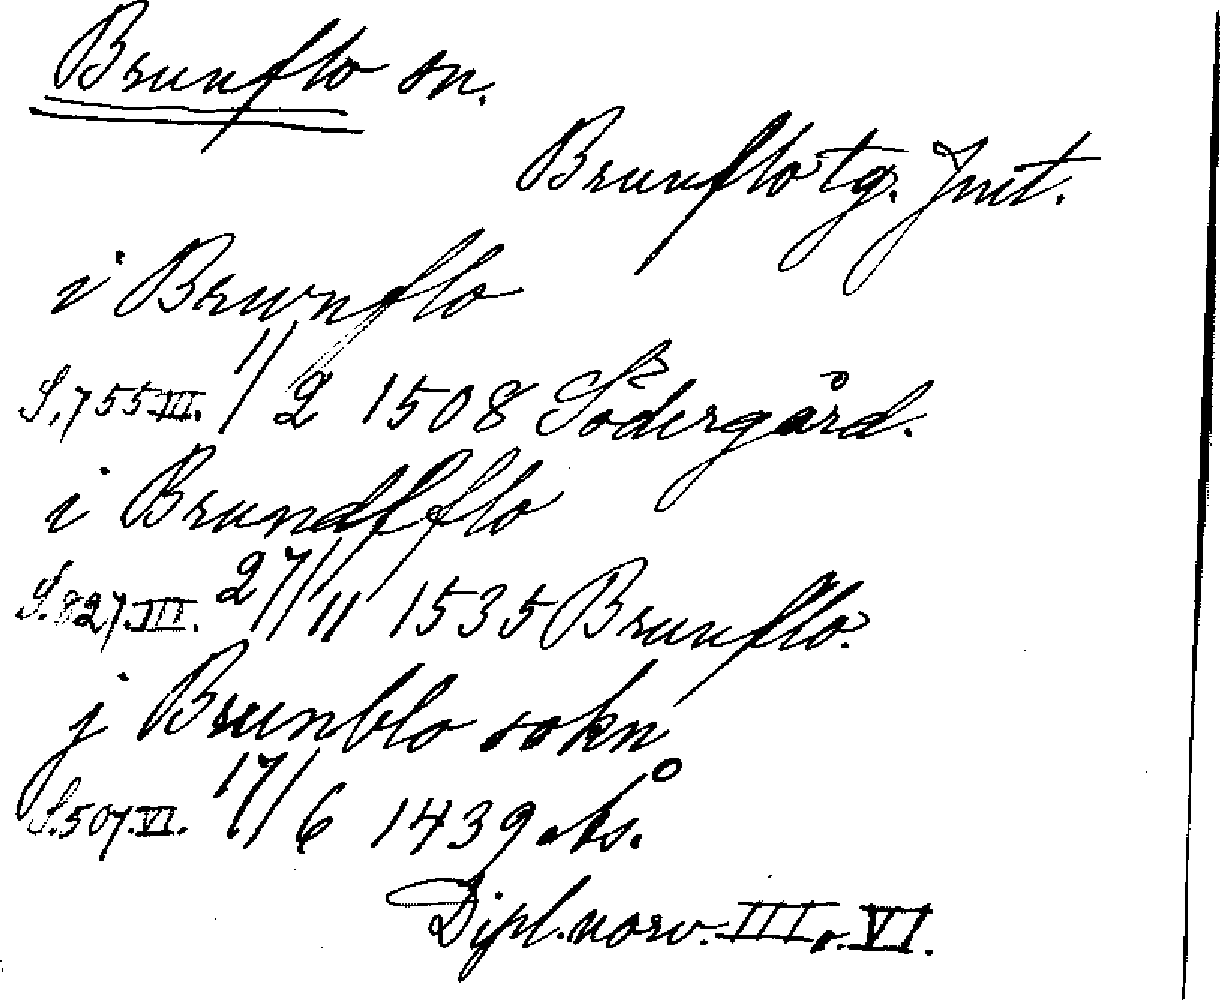 Brunflo sn.
Brunflo tg. Jmt.
i Brwnflo
S. 755 III. 11/2 1508 Södergård.
i Brundfflo
S. 827. III. 27/11 1535 Brunflo.
j Brunblo sokn
S. 507. VI. 17/6 1439 Ås.
Dipl. norv. III o. VI.